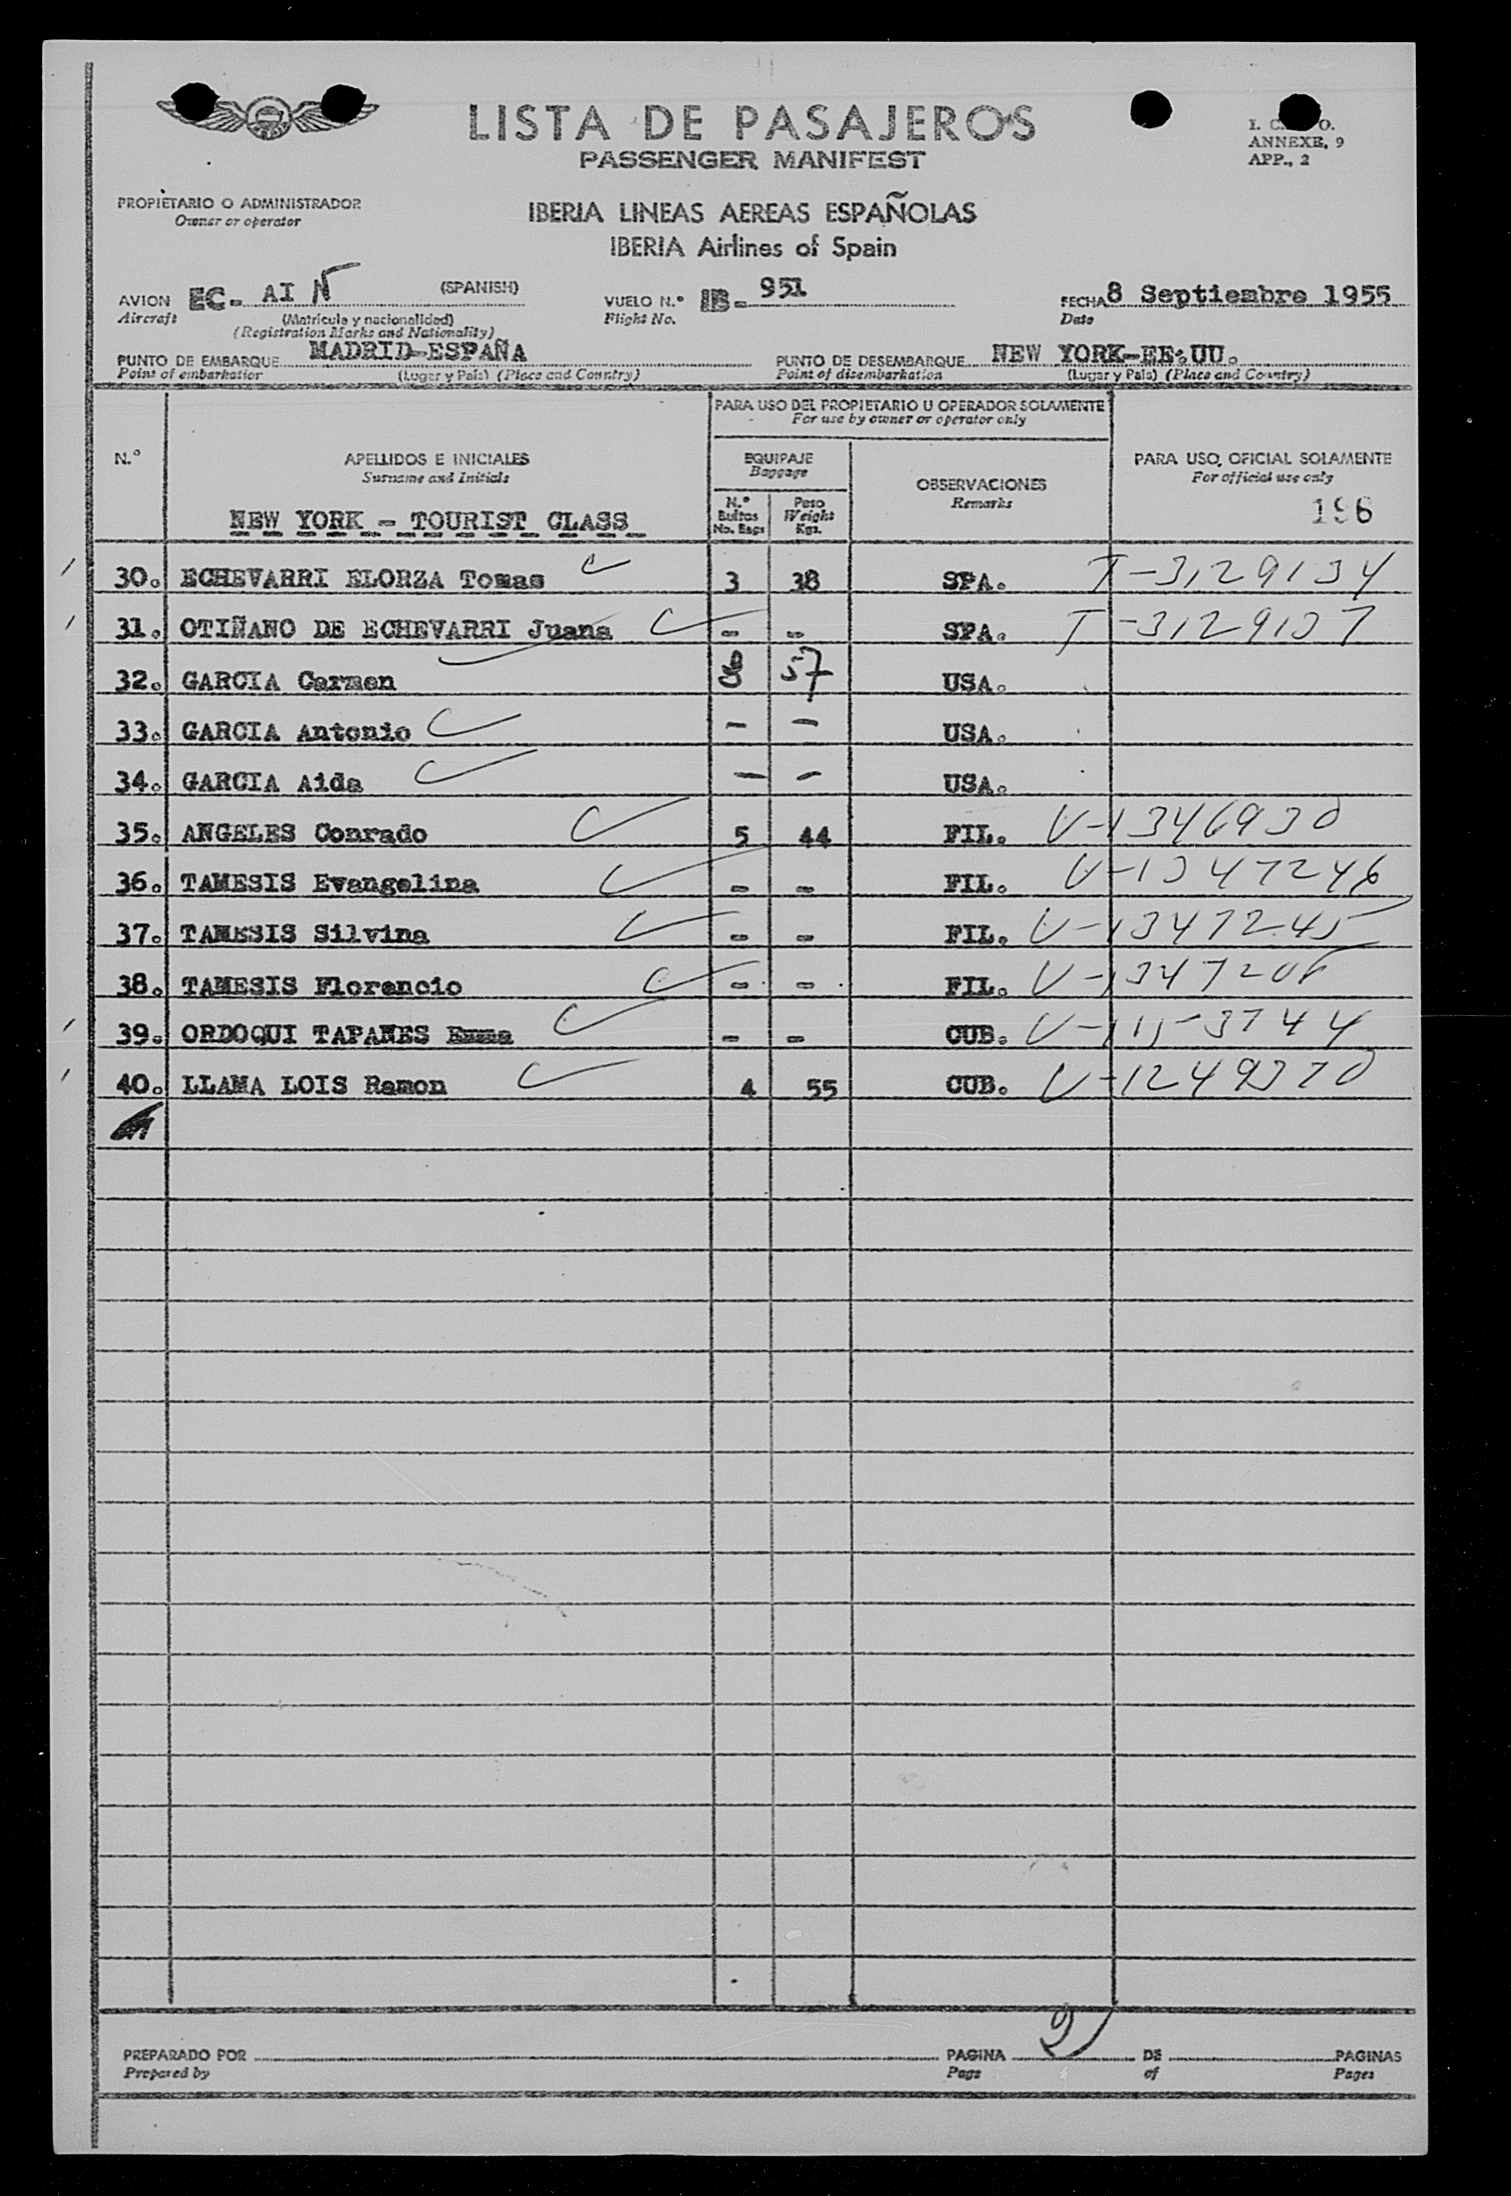 LISTA DE PASAJEROS
PASSENGER MANIFEST
I. C. O.
ANNEXE, 9
APP., 2
PROPIETARIO O ADMINISTRADOR
Owner or operator
IBERIA LINEAS AEREAS ESPAÑOLAS
IBERIA Airlines of Spain
AVION EC- AI N (SPANISH) VUELO N.º IB- 951 FECHA 8 Septiembre 1955
Aircraft (Matrícula y nacionalidad) Flight No. Date
(Registration Marks and Nationality)
PUNTO DE EMBARQUE MADRID-ESPAÑA PUNTO DE DESEMBARQUE NEW YORK-EE.UU.
Point of embarkation (Lugar y País) (Place and Country) Point of disembarkation (Lugar y País) (Place and Country)
PARA USO DEL PROPIETARIO U OPERADOR SOLAMENTE
For use by owner or operator only
N.º APELLIDOS E INICIALES EQUIPAJE OBSERVACIONES PARA USO OFICIAL SOLAMENTE
Surname and Initials Baggage Remarks For official use only
N.º Bultos No. Bags Peso Weight Kgs. 196
NEW YORK - TOURIST CLASS
30. ECHEVARRI ELORZA Tomas 3 38 SPA. T-3129134
31. OTIÑANO DE ECHEVARRI Juana - - SPA. T-3129137
32. GARCIA Carmen 8 57 USA.
33. GARCIA Antonio - - USA.
34. GARCIA Aida - - USA.
35. ANGELES Conrado 5 44 FIL. V-1346930
36. TAMESIS Evangelina - - FIL. V-1347246
37. TAMESIS Silvina - - FIL. V-1347245
38. TAMESIS Florencio - - FIL.
39. ORDOQUI TAPANES Emma - - CUB.
40. LLAMA LOIS Ramon 4 55 CUB. V-1249370
PREPARADO POR PAGINA 2 DE PAGINAS
Prepared by Page of Pages